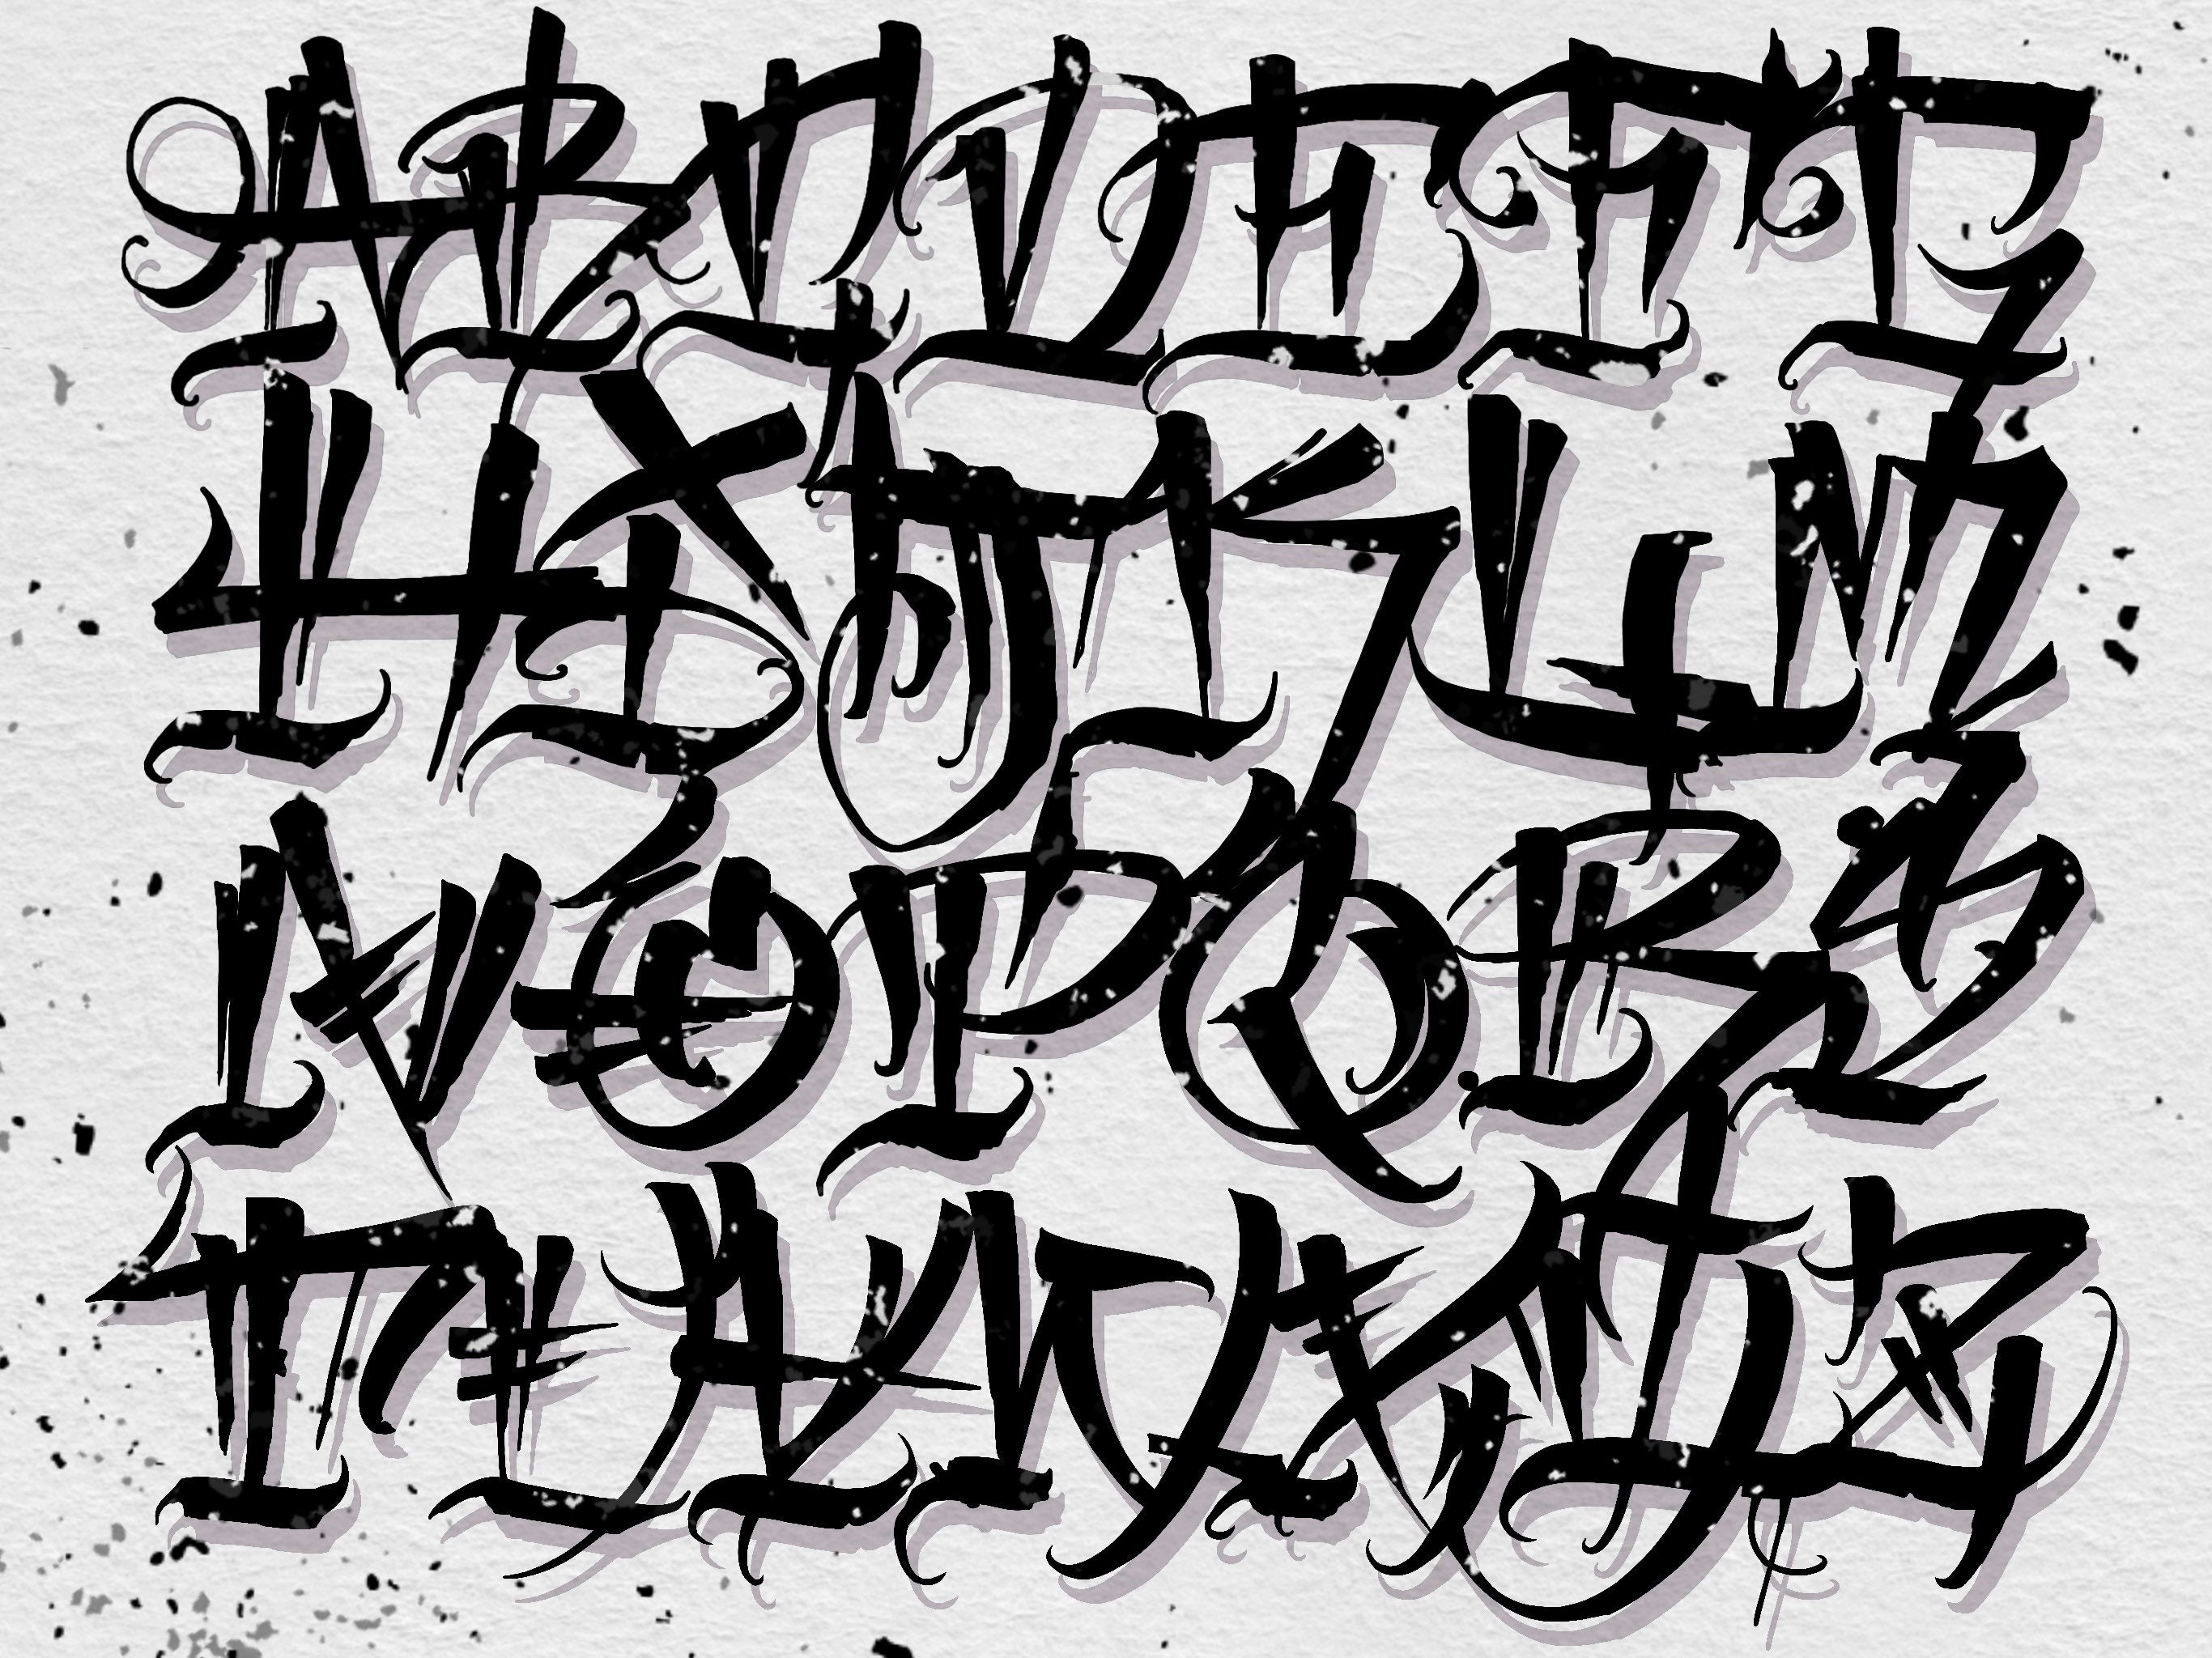 ABCDEFG
HIJKLM
NOPQRS
TUVWXYZ